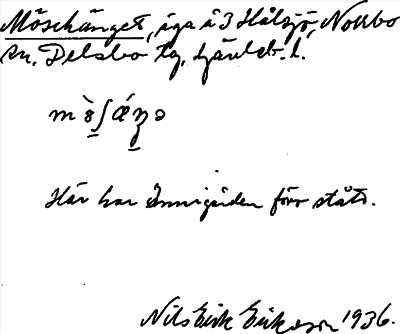 Möschänget, äga å 3 Hålsjö, Norrbo
sn, Delsbo tg, Gävleb. l.
Här har Smingården förr stått.
Nils Erik Eriksson 1936.